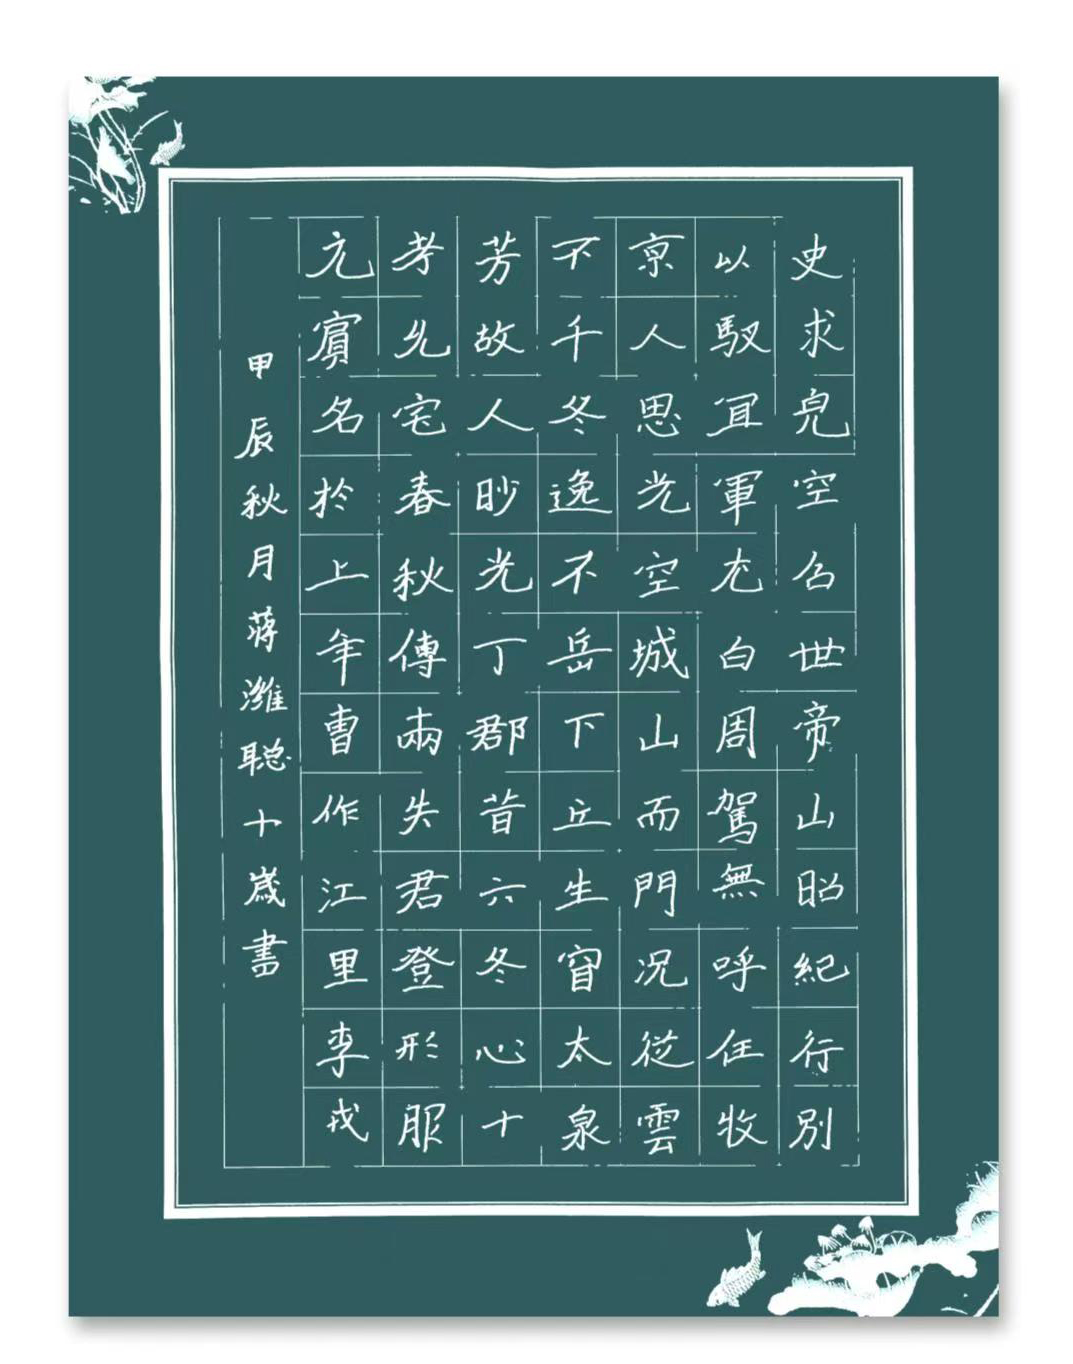 史求皃空台世帝山昭紀行別
以馭冝軍尢白周駕無呼任牧
京人思光空城山而門况從雲
不千冬逸不岳下丘生窅太泉
芳故人眇光丁郡昔六冬心十
孝允宅春秋傳兩失君登形服
元賓名於上年曹作江里李戎
甲辰秋月蒋濰聪十歲書